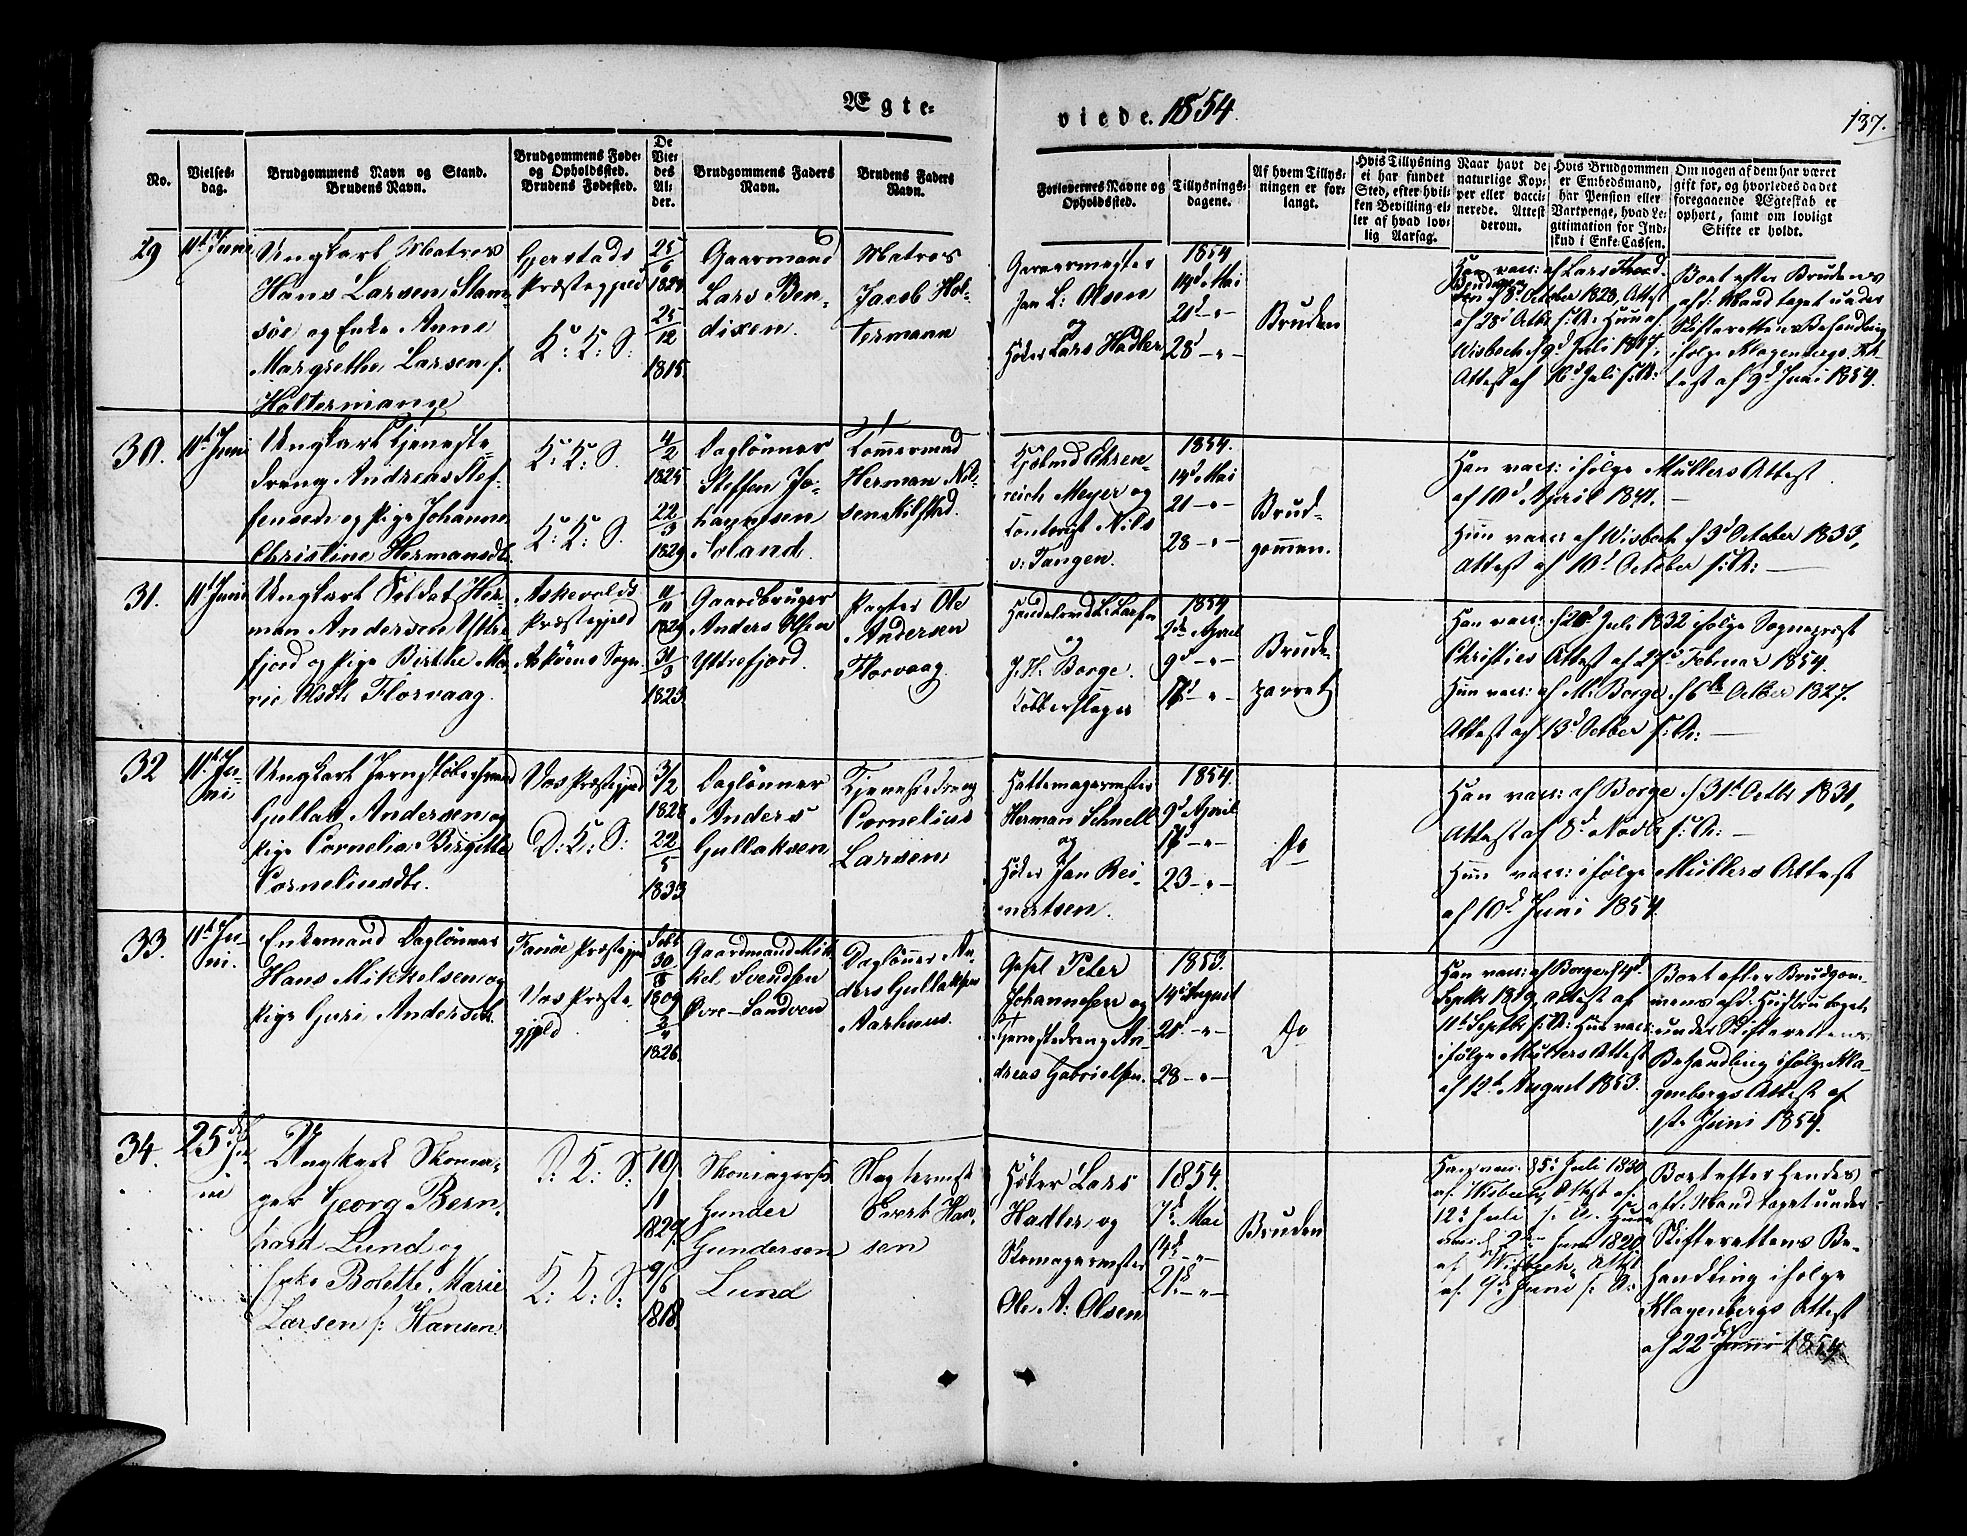 Ægte-
viede. 1854.
137.
No.
Vielses-
dag.
Brudgommens Navn og Stand.
Brudens Navn.
Brudgommens Føde-
og Opholdssted.
Brudens Fødested.
De
Vie-
des
Al-
der.
Brudgommens Faders
Navn.
Brudens Faders
Navn.
Forlovernes Navne og
Opholdssted.
Tillysnings-
dagene.
Af hvem Tillys-
ningen er for-
langt.
Hvis Tillysning
ei har fundet
Sted, efter hvil-
ken Bevilling el-
ler af hvad lov-
lig Aarsag.
Naar havt de
naturlige Kop-
per eller vacci-
nerede. Attest
derom.
Hvis Brudgommen
er Embedsmand,
har Pension eller
Vartpenge, hvad Le-
gitimation for Ind-
skud i Enke-Cassen.
Om nogen af dem har været
gift før, og hvorledes da det
foregaaende Ægteskab er
ophørt, samt om lovligt
Skifte er holdt.
29
11te Juni
Ungkarl Matros
Hans Larsen Stam-
søe og Enke Anne
Margrethe Larsen f.
Holtermann
Gjerstads
Præstegjeld
K: K: S.
25/6
25/12
1815.
Gaarmand
Lars Ben-
dixen.
Matros
Jacob Hol-
termann
Jan L: Olsen
og
Høker Lars Hadler
1854
14d Mai
21d -"-
28 -"-
Bruden
den 8d October 1828, Attest
af 28d Octbr s: A: Hun af
Wisbech d 9d Juli 1817,
Attest af 16d Juli s: A:
Bort efter Brudens
afd: Mand taget under
Skifterettens Behandling
ifølge Klagenbergs At-
test af 9d Juni 1854.
30.
11te Juni
Ungkarl Tjeneste-
dreng Andreas Stef-
fensen og Pige Johanne
Christine Hermansdtr.
K: K: S.
K: K: S.
4/2
1825
22/3
1829
Dagløner
Steffen Jo-
hannesen
Soland.
Tømmermand
Herman Nil-
sen Kilstad.
Kjøbmd Ehren-
reich Meyer og
Contorist Nils
v: Tangen.
1854.
14d Mai
21 -"-
28 -"-
Brud-
gommen.
Han vacc: ifølge Müllers Attest
af 10d April 1841. —
Hun vacc: af Wisbech d 3d October 1833,
Attest af 10d October s: A: —
31.
11te Juni
Ungkarl Soldat Her-
man Andersen Ytre-
fjord og Pige Birthe Ma-
rie Olsdtr Florvaag.
Askevolds
Præstegjeld
Askøens Sogn.
11/11
1829
31/3
1825.
Gaardbruger
Anders Olsen
Yttrefjord.
Pagter Ole
Andersen
Florvaag.
og
J. H. Borge.
Kobberslager
1854
2d April
9d -"-
17d -"-
Brude-
parret
Han vacc: d 26d Juli 1832 ifølge Sognepræst
Christies Attest af 27d Februar 1854.
Hun vacc: af M: Borge d 6te October 1827.
Attest af 13d October s: A: —
32
11te Ju-
ni
Ungkarl Jernstøbersvend
Gullak Andersen og
Pige Cornelia Birgitte
Corneliusdtr.
Vos Præstegjeld
D: K: S:
3/2
1828
22/5
1833
Dagløner
Anders
Gullaksen
Tjenestedreng
Cornelius
Larsen
Hattemagermester
Herman Schnell
og
Høker Jan Rei-
nertsen.
1854.
9d April
17 -"-
23 -"-
Do
Han vacc: af Borge d 31te Octbr 1831,
Attest af 8d Novbr s: A: —
Hun vacc: ifølge Müllers Attest
af 10d Juni 1854.
33.
11te Ju-
ni.
Enkemand Dagløner
Hans Mikkelsen og
Pige Guri Andersdtr.
Fanøe Præstegjeld
Vos Præste-
gjeld.
1809
1826.
Gaardmand Mik-
kel Svendsen
Øvre-Sandven
Dagløner An-
ders Gullaksen
Aarhuus.
Gesel Peter
Johannesen og
Tjenestedreng An-
dreas Gabrielsen.
1853.
14d August
21d -"-
28 -"-
Do
Septbr 1819, attest af
11te Septbr s: A: Hun vacc:
ifølge Müllers Attest
af 12te August 1853.
Bort efter Brudgom-
mens afd: Hustru taget
under Skifterettens
Behandling ifølge Kla-
genbergs Attest af
1ste Juni 1854.
34.
25de Ju-
ni
Ungkarl Skoma-
ger Georg Bern-
hard Lund og
Enke Bolette Marie
Larsen f: Hansen.
D: K: S:
K: K: S:
10/1
1827.
9/6
1818.
Skomagerms
Gunder
Gundersen
Lund
Slagtermst
Evert Han-
sen
Høker Lars
Hadler og
Skomagermester
Ole A: Olsen
1854.
7d Mai
14d -"-
21d -"-
Bruden
12d Juli s: A: Hun
af Wisbech, Attst
af 9d Juni s: A:
Bort efter hendes
afd: Mand taget under
Skifterettens Be-
handling ifølge
Klagenbergs Attest
af 22d Juni 1854.